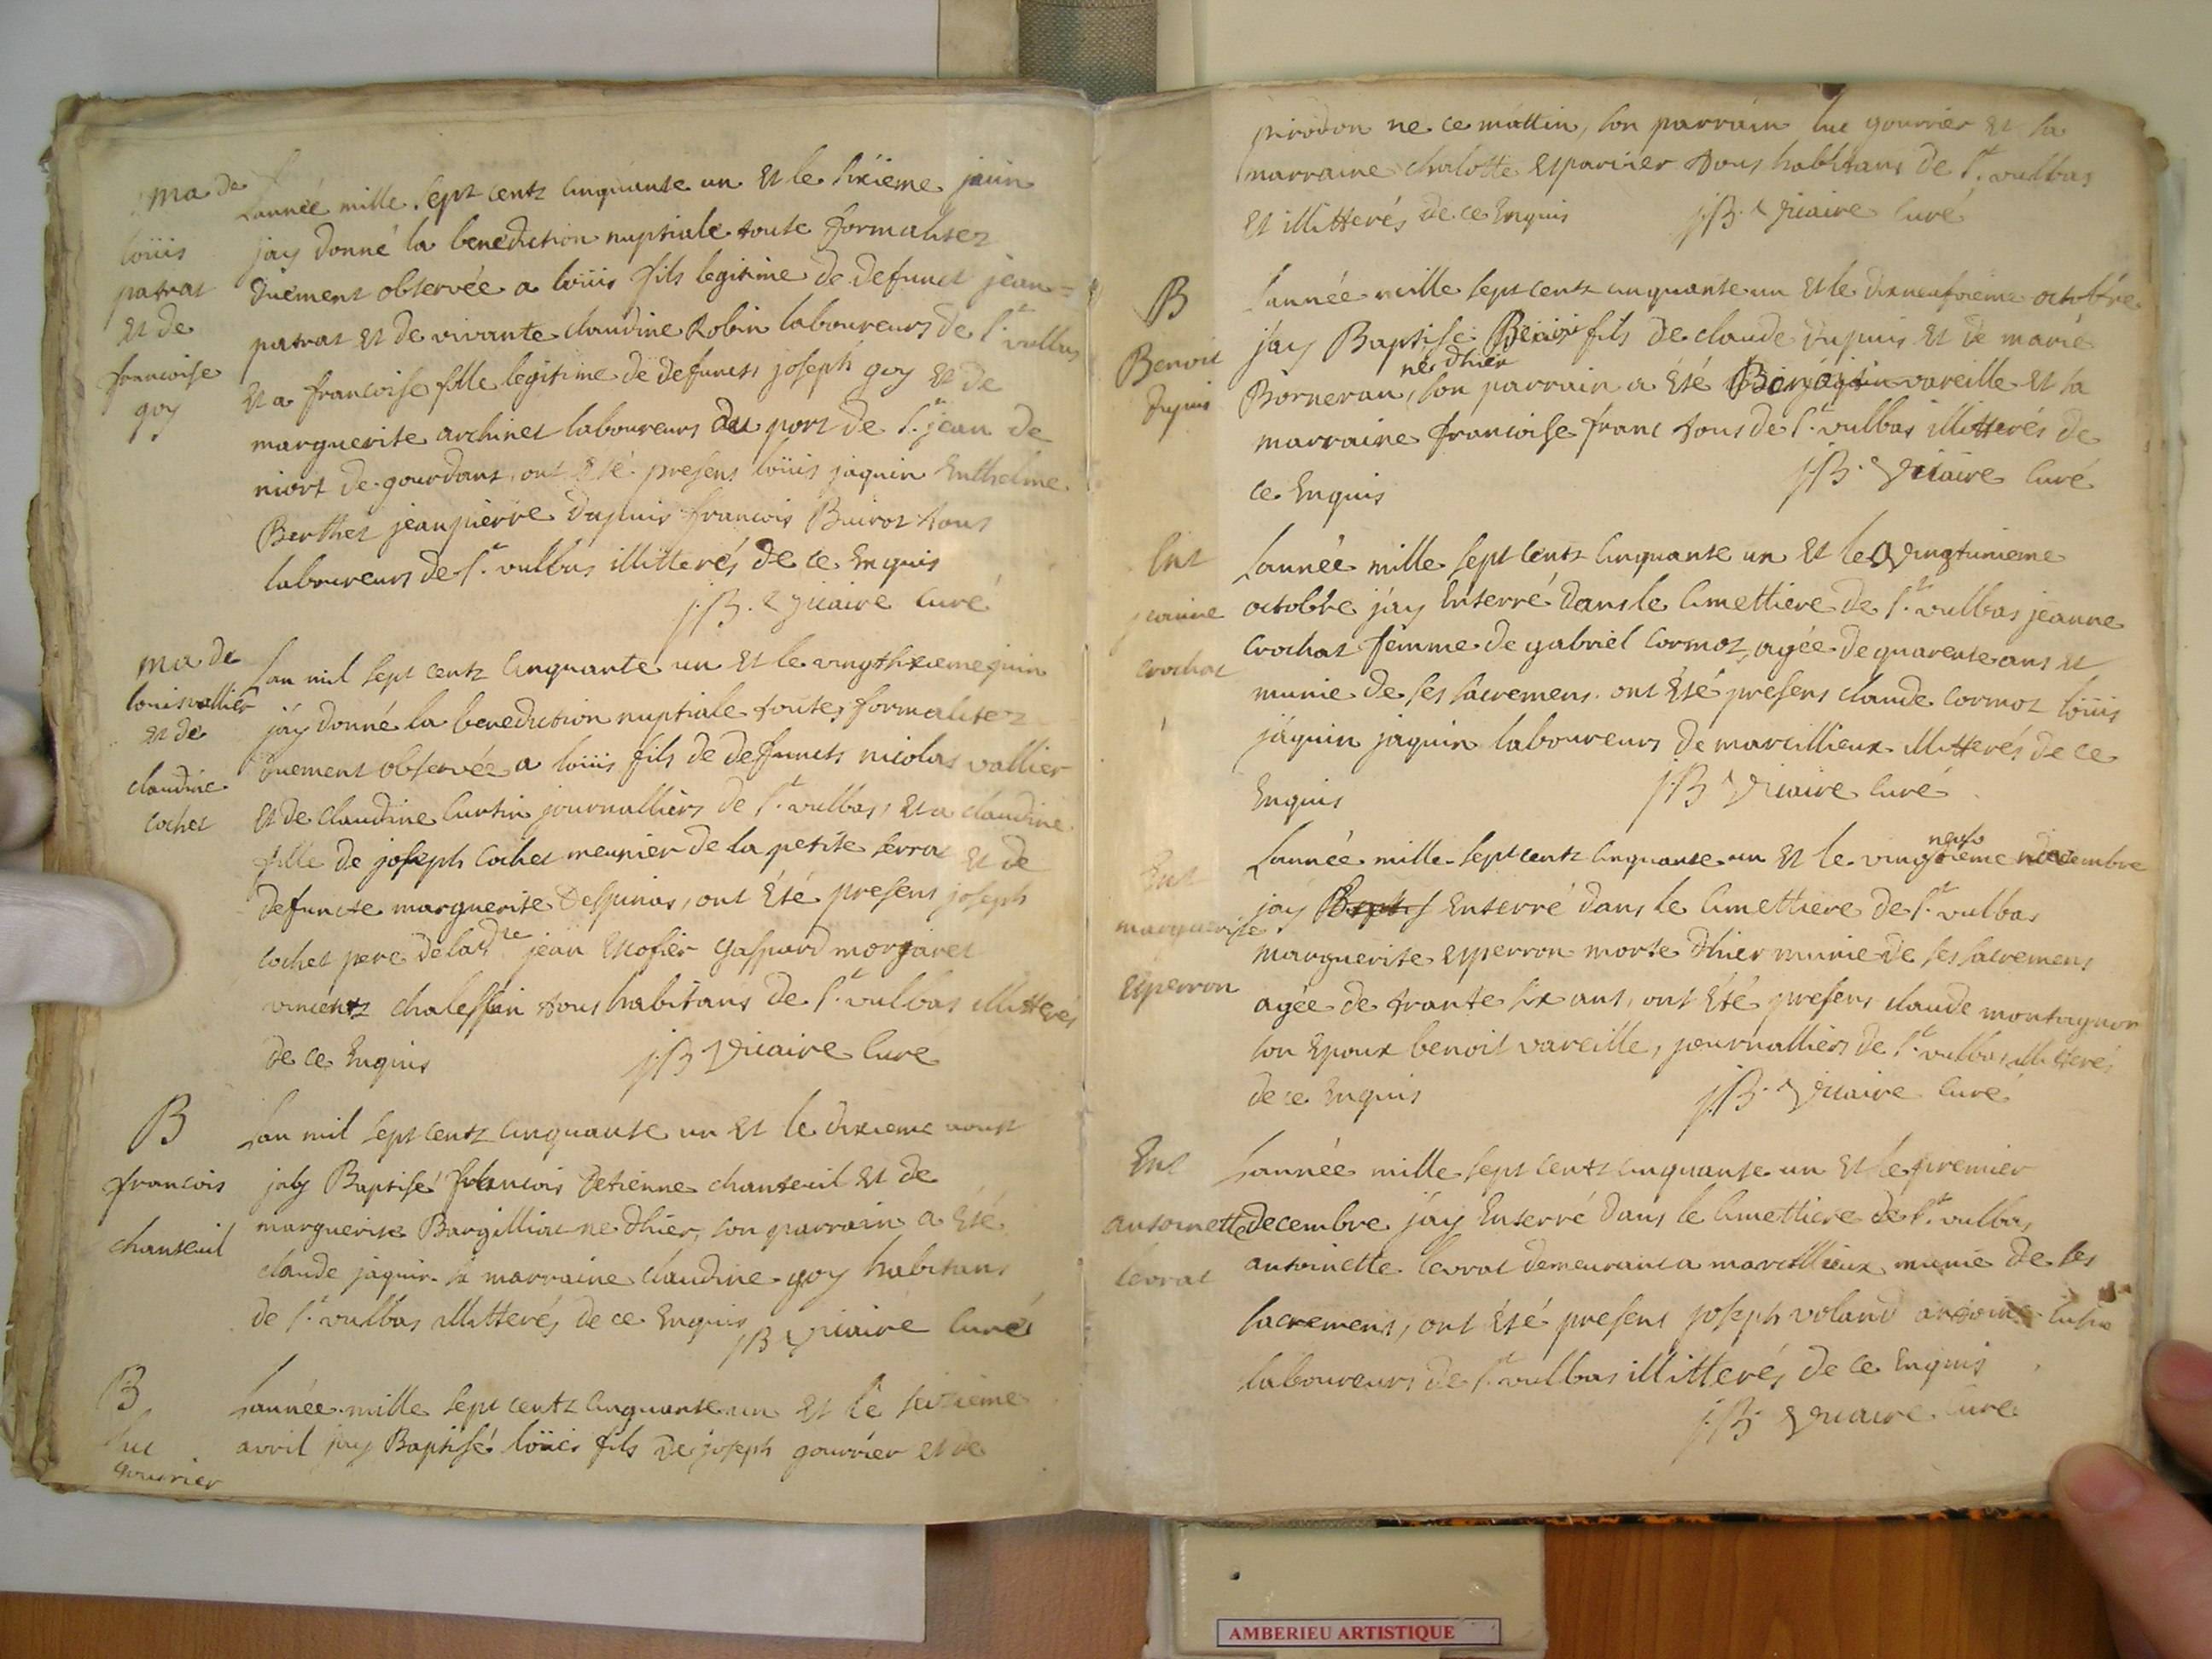 ma de
loüis
patrat
et de
francoise
goy
Lannée mille sept centz cinquante un et le sixieme juin
jay donné la benediction nuptiale toute formalitez
duement observée a loüis fils legitime de defunct jean=
patrat et de vivante claudine Robin laboureurs de st. vulbas
et a francoise fille legitime de defuncts joseph goy et de
marguerite archinet laboureurs du port de st. jean de
niort de gourdans, ont eté presens loüis jaquin Enthelme
Berthet jeanpierre dupuis francois Buirot tous
laboureurs de st. vulbas illitterés de ce Enquis
j.B. Vicaire curé
ma de
louis vallier
et de
claudine
cochet
Lan mil sept centz cinquante un et le vingtsixieme juin
jáy donné la benediction nuptiale toutes formalitez
duement observée a loüis fils de defuncts nicolas vallier
et de claudine curtin journalliers de st. vulbas, et a claudine
fille de joseph cochet meunier de la petite serra et de
defuncte marguerite Despinas, ont Eté presens joseph
cochet pere de lad.te jean Escofier gaspard morgaret
vincentz chalessin tous habitans de st. vulbas illitterés
de ce Enquis
j.B Vicaire Cure
B
francois
chanteuil
Lan mil sept centz cinquante un et le dixieme aoust
jay Baptisé francois Detienne chanteuil et de
marguerite Bargilliat ne dhier, son parrain a Eté
claude jaquin sa marraine claudine goy habitans
de st. vulbas illitterés de ce Enquis
j.B Vicaire Curé
B
luc
gourrier
Lannée mille sept centz cinquante un et le seizieme
avril jay Baptisé loüis fils de joseph gourrier et de
pirodon ne ce mattin, son parrain luc gourrier et sa
marraine chalotte Esparvier tous habitans de st. vulbas
et illitterés de ce Enquis
j.B. Vicaire Curé
B
Benoit
dupuis
Lannée mille sept centz cinquante un et le dixneufvieme octobre
jay Baptisé Benoit fils de claude dupuis et de marie
né dhier
Borneran, son parrain a Eté vareille et sa
marraine francoise franc tous de st. vulbas illitterés de
ce Enquis
j.B. Vicaire Curé
Ent
jeanne
crochat
Lannée mille sept centz cinquante un et le vingtunieme
octobre jáy Enterré dans le cimettiere de st. vulbas jeanne
crochat femme de gabriel cormoz, agée de quarente ans et
munie de ses sacremens. ont Eté presens claude cormoz loüis
jáquin jaquin laboureurs de marcillieux illitterés de ce
Enquis
j.B Vicaire Curé
Ent
marguerite
Esperron
neuf
Lannée mille sept centz cinquante un et le vingtieme novembre
jaý Baptis Enterré dans le cimettiere de st. vulbas
marguerite Esperron morte dhier munie de ses sacremens
agée de trante six ans, ont Eté presens claude montagnon
son Epoux benoit vareille, journalliers de st. vulbas illitterés
de ce Enquis
j.B. Vicaire Curé
Ent
antoinette
levrat
Lannée mille sept centz cinquante un et le premier
decembre jáy Enterré dans le cimettiere de st. vulbas
antoinette levrat demeurante a marcillieux munie de ses
sacremens, ont Eté presens joseph voland antoine
laboureurs de st. vulbas illitterés de ce Enquis
j.B. Vicaire Cure
AMBERIEU ARTISTIQUE